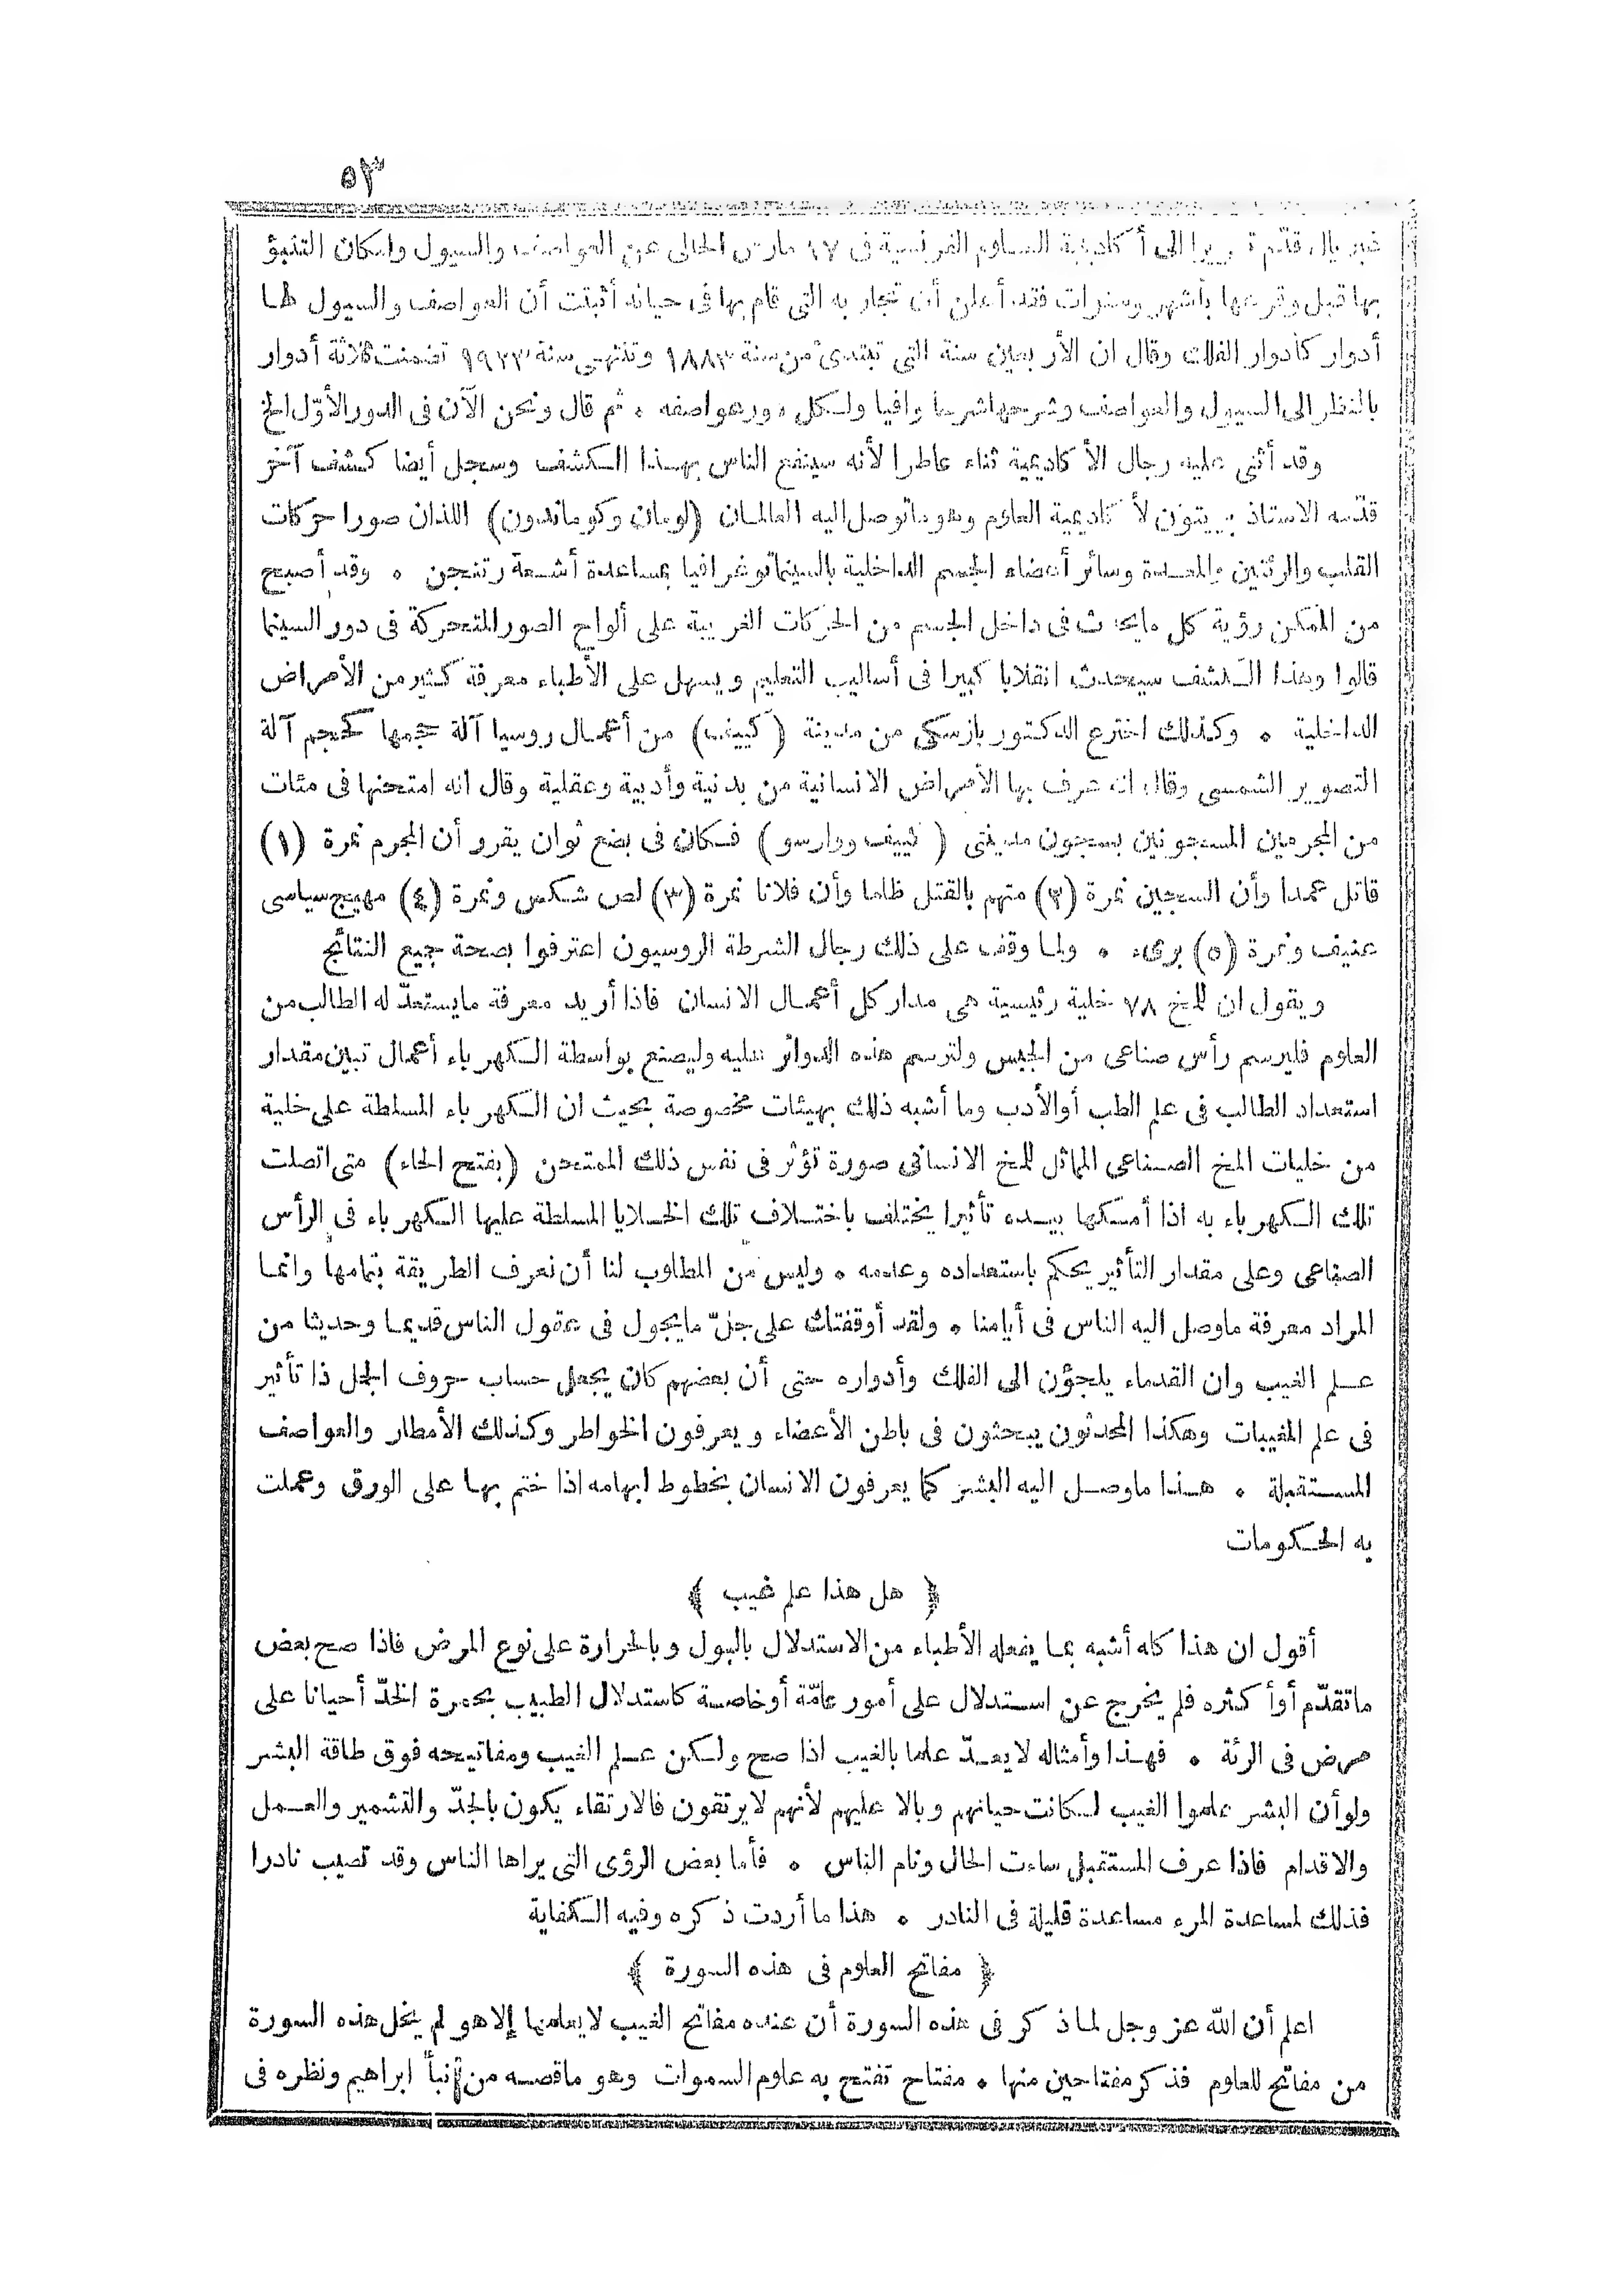 ٥٣
قدّم الى أكاديمية العلوم الفرنسية فى ١٧ مارس الحالى عن العواصف والسيول وامكان التنبؤ
بها قبل وقوعها بأشهر وسنوات فقد أعلن أن تجاربه التى قام بها فى حياته أثبتت أن العواصف والسيول لها
أدوار كأدوار الفلك وقال ان الأربعين سنة التى تبتدئ من سنة ١٨٨٣ وتنتهى سنة ١٩٢٣ تضمنت ثلاثة أدوار
بالنظر الى السيول والعواصف وشرحها شرحا وافيا ولكل دور عواصفه . ثم قال ونحن الآن فى الدور الأوّل الخ
وقد أثنى عليه رجال الأكاديمية ثناء عاطرا لأنه سينفع الناس بهذا الكشف وسجل أيضا كشف آخر
قدّمه الاستاذ لأكاديمية العلوم وهو ماتوصل اليه العالمان (لومان وكوماندون) اللذان صورا حركات
القلب والرئتين والمعدة وسائر أعضاء الجسم الداخلية بالسينماتوغرافيا بمساعدة أشعة رتنجن . وقد أصبح
من الممكن رؤية كل مايحدث فى داخل الجسم من الحركات الغريبة على ألواح الصور المتحركة فى دور السينما
قالوا وهذا الكشف سيحدث انقلابا كبيرا فى أساليب التعليم ويسهل على الأطباء معرفة كثير من الأمراض
الداخلية . وكذلك اخترع الدكتور بازسكى من مدينة (كييف) من أعمال روسيا آلة حجمها كحجم آلة
التصوير الشمسى وقال انه عرف بها الأمراض الانسانية من بدنية وأدبية وعقلية وقال انه امتحنها فى مئات
من المجرمين المسجونين بسجون مدينتى (كييف ووارسو) فكان فى بضع ثوان يقرر أن المجرم نمرة (١)
قاتل عمدا وأن السجين نمرة (٢) متهم بالقتل ظلما وأن فلانا نمرة (٣) لص شكس ونمرة (٤) مهيج سياسى
عنيف ونمرة (٥) برىء . ولما وقف على ذلك رجال الشرطة الروسيون اعترفوا بصحة جميع النتائج
ويقول ان للمخ ٧٨ خلية رئيسية هى مدار كل أعمال الانسان فاذا أريد معرفة مايستعدّ له الطالب من
العلوم فليرسم رأس صناعى من الجبس ولترسم هذه الدوائر عليه وليصنع بواسطة الكهرباء أعمال تبين مقدار
استعداد الطالب فى علم الطب أوالأدب وما أشبه ذلك بهيئات مخصوصة بحيث ان الكهرباء المسلطة على خلية
من خليات المخ الصناعى المماثل للمخ الانسانى صورة تؤثر فى نفس ذلك الممتحن (بفتح الحاء) متى اتصلت
تلك الكهرباء به اذا أمسكها بيده تأثيرا يختلف باختلاف تلك الخلايا المسلطة عليها الكهرباء فى الرأس
الصناعى وعلى مقدار التأثير يحكم باستعداده وعدمه . وليس من المطلوب لنا أن نعرف الطريقة بتمامها وانما
المراد معرفة ماوصل اليه الناس فى أيامنا . ولقد أوقفتك على جلّ مايجول فى عقول الناس قديما وحديثا من
علم الغيب وان القدماء يلجؤن الى الفلك وأدواره حتى أن بعضهم كان يجعل حساب حروف الجمل ذا تأثير
فى علم المغيبات وهكذا المحدثون يبحثون فى باطن الأعضاء ويعرفون الخواطر وكذلك الأمطار والعواصف
المستقبلة . هذا ماوصل اليه البشر كما يعرفون الانسان بخطوط ابهامه اذا ختم بها على الورق وعملت
به الحكومات
﴿ هل هذا علم غيب ﴾
أقول ان هذا كله أشبه بما يفعله الأطباء من الاستدلال بالبول وبالحرارة على نوع المرض فاذا صح بعض
ماتقدّم أوأكثره فلم يخرج عن استدلال على أمور عامّة أوخاصة كاستدلال الطبيب بحمرة الخدّ أحيانا على
مرض فى الرئة . فهذا وأمثاله لايعدّ علما بالغيب اذا صح ولكن علم الغيب ومفاتيحه فوق طاقة البشر
ولوأن البشر علموا الغيب لكانت حياتهم وبالا عليهم لأنهم لايرتقون فالارتقاء يكون بالجدّ والتشمير والعمل
والاقدام فاذا عرف المستقبل ساءت الحال ونام الناس . فأما بعض الرؤى التى يراها الناس وقد تصيب نادرا
فذلك لمساعدة المرء مساعدة قليلة فى النادر . هذا ما أردت ذكره وفيه الكفاية
﴿ مفاتح العلوم فى هذه السورة ﴾
اعلم أن الله عز وجل لما ذكر فى هذه السورة أن عنده مفاتح الغيب لايعلمها إلا هو لم يخل هذه السورة
من مفاتح للعلوم فذكر مفتاحين منها . مفتاح تفتح به علوم السموات وهو ماقصه من نبأ ابراهيم ونظره فى